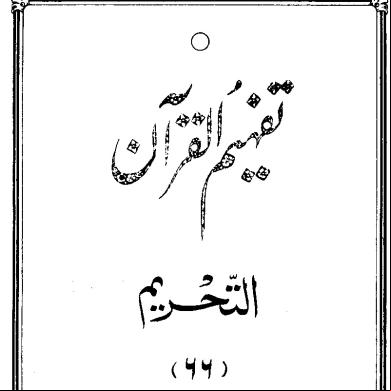 تفہیم القرآن
التحریم
(۶۶)